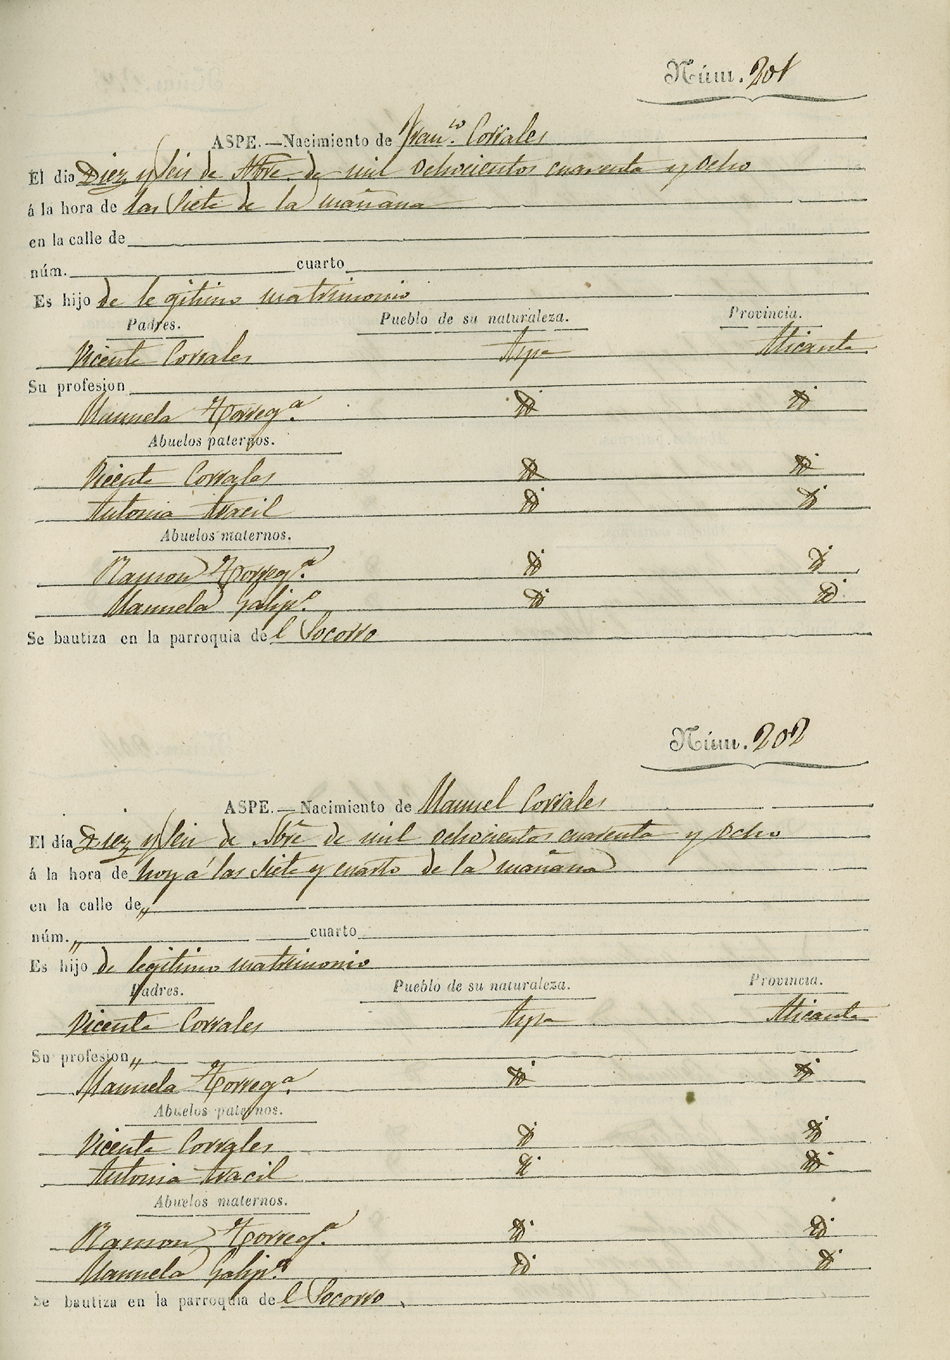 Núm. 201
ASPE.—Nacimiento de Fran.co Corrales
El día Diez y Seis de Nbre. de mil ochocientos cuarenta y ocho
á la hora de las Siete de la mañana
en la calle de
núm. cuarto
Es hijo de legitimo matrimonio
Padres. Pueblo de su naturaleza. Provincia.
Vicente Corrales Aspe Alicante
Su profesion
Manuela Torreg.a id id
Abuelos paternos.
Vicente Corrales id id
Antonia Aracil id id
Abuelos maternos.
Ramon Torreg.a id id
Manuela id id
Se bautiza en la parroquia del Socorro
Núm. 202
ASPE.—Nacimiento de Manuel Corrales
El día Diez y Seis de de mil ochocientos cuarenta y ocho
á la hora de hoy á las Siete y cuarto de la mañana
en la calle de „
núm. „ cuarto
Es hijo de legitimo matrimonio
Padres. Pueblo de su naturaleza. Provincia.
Vicente Corrales Aspe Alicante
Su profesion „
Manuela Torreg.a id id
Abuelos paternos.
Vicente Corrales id id
Antonia Aracil id id
Abuelos maternos.
Ramon Torreg.a id id
Manuela id id
Se bautiza en la parroquia de el Socorro.